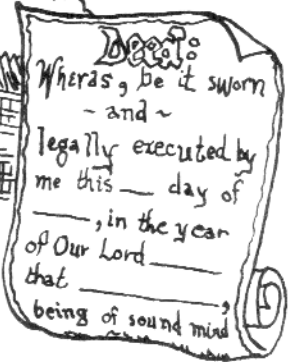 Deed:
Wheras, be it sworn
~ and ~
legally executed by
me this ___ day of
_____, in the year
of Our Lord ______
that ____________,
being of sound mind